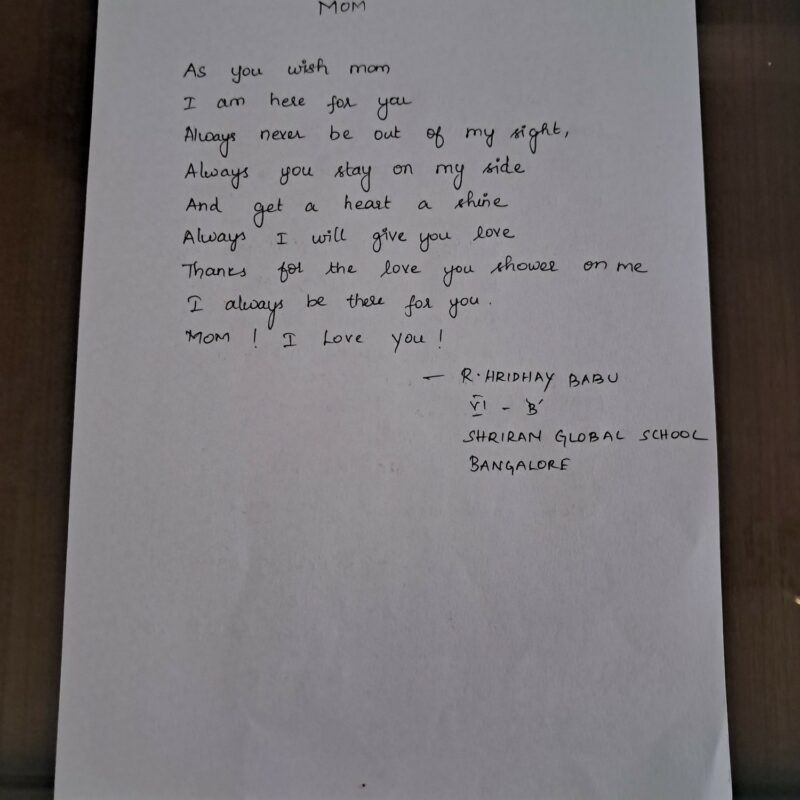 MOM
As you wish mom
I am here for you
Always never be out of my sight,
Always you stay on my side
And get a heart a shine
Always I will give you love
Thanks for the love you shower on me
I always be there for you.
MOM ! I Love you !
— R. HRIDHAY BABU
VI - 'B'
SHRIRAM GLOBAL SCHOOL
BANGALORE